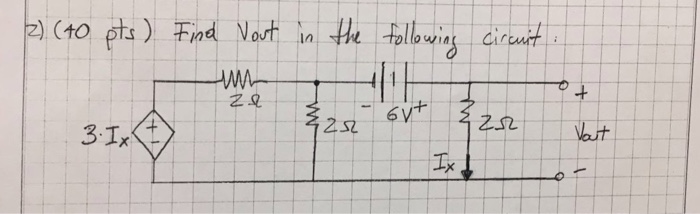 2) (40 pts) Find Vout in the following circuit :
2Ω
3·Ix
+
-
2Ω
- 6V +
2Ω
Ix
+
Vout
-